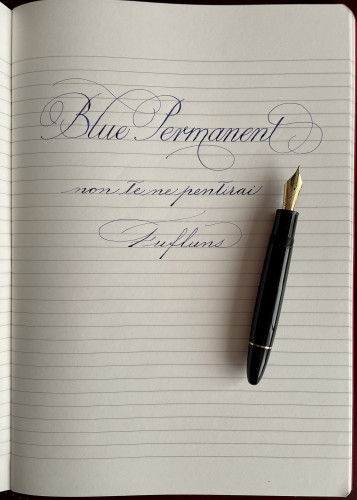 Blue Permanent
non te ne pentirai
Fufluns